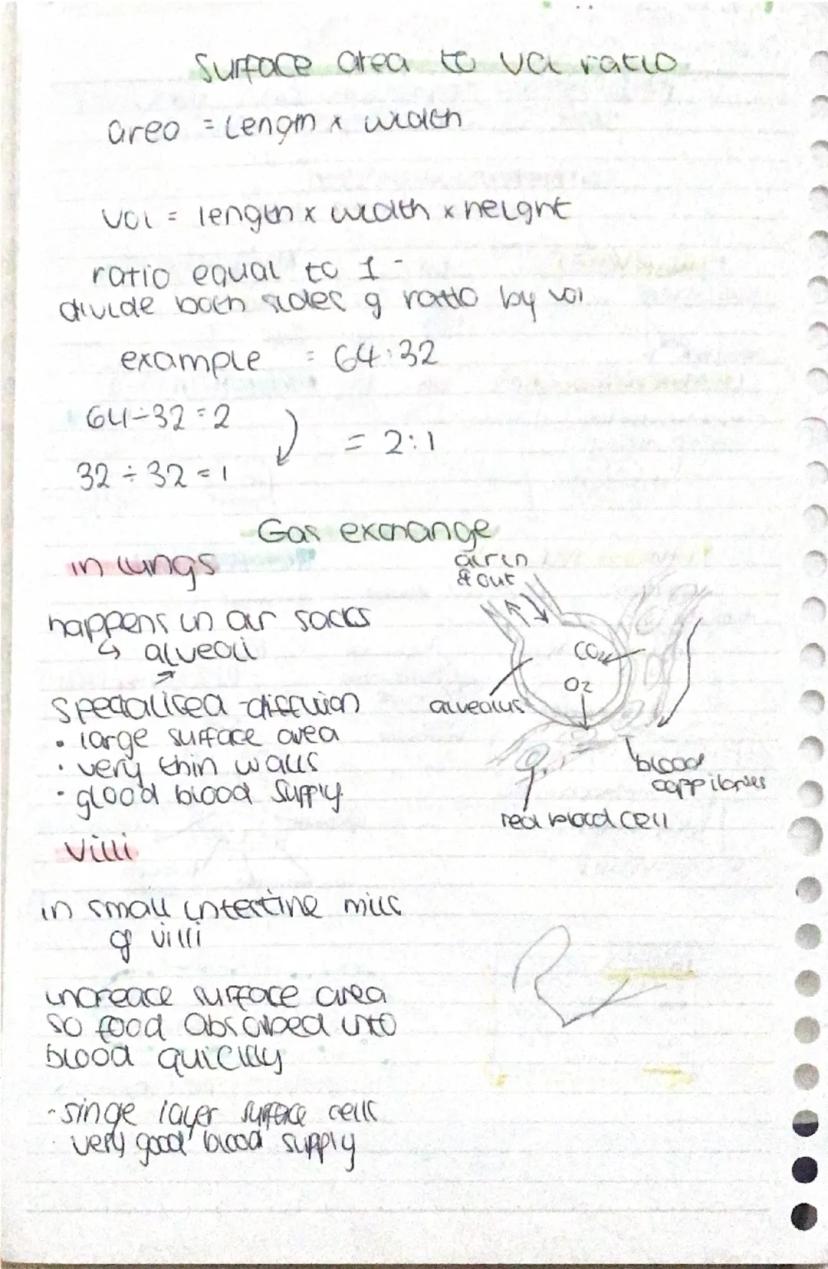 Surface area to vol ratio
area = length x width
vol = length x width x height
ratio equal to 1 -
divide both sides of ratio by vol
example = 64:32
64÷32=2
32÷32=1
= 2:1
Gas exchange
in lungs
happens in air sacks
↳ alveoli
specialised diffusion
• large surface area
• very thin walls
• glood blood supply
air in
& out
CO2
O2
alveolus
blood
cappilaries
red blood cell
Villi
in small intestine mills
of villi
increace surface area
so food absorbed into
blood quickly
- singe layer surface cells
very good blood supply